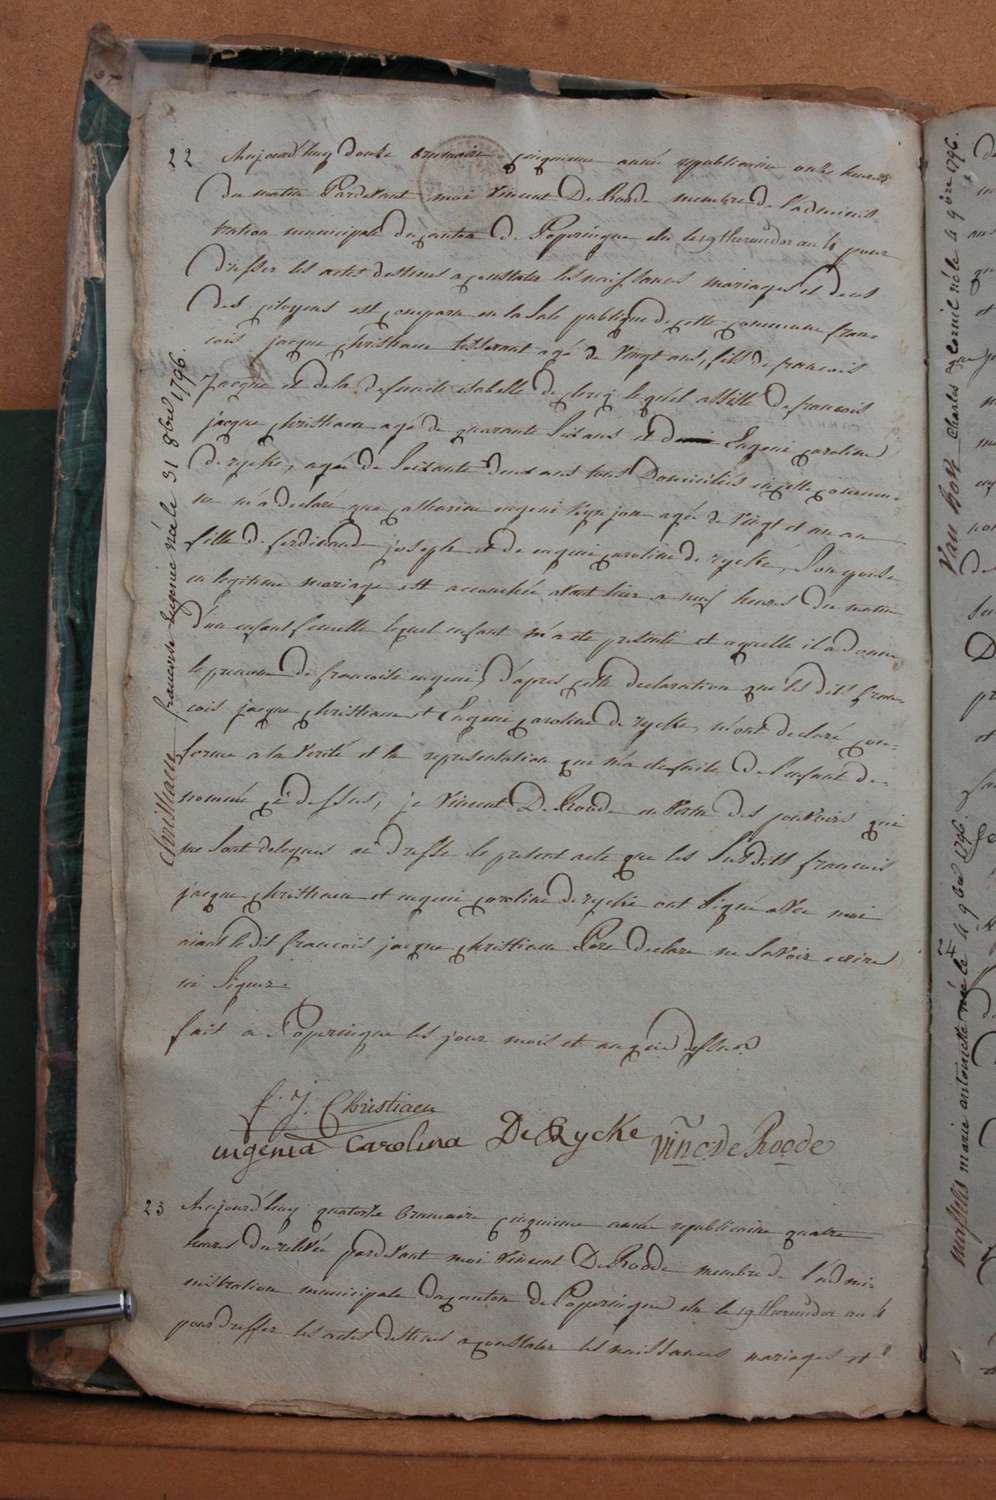 22 Aujourd'huy douze brumaire cinquieme année republicaine onze heures
du matin Pardevant moi Vincent De Roode membre de l'adminis
tration municipale du canton de Poperingue elu le 19 thermidor an 4 pour
dresser les actes destines a constater les naissances mariages et deces
des citoyens est comparu en la sale publique de cette commune fran-
cois jacque Christiaen tisserant agé de vingt ans, fils de francois
Jacque et de la defuncte isabelle de clercq lequel assisté de francois
jacque Christiaen agé de quarante six ans et de Eugeni caroline
De rycke, agée de soixante deux ans tous Domiciliés en cette commu-
ne m'a declaré que catharine eugeni agée de vingt et un an
fille de ferdinande joseph et de eugeni caroline de rycke, son epouse
en legitime mariage est accouchée avant hier a neuf heures du matin
d'un enfant femelle lequel enfant m'a eté presenté et auquelle il a donné
le prenom de francoise eugeni, d'apres cette declaration que les dits fran-
cois jacque Christiaen et Eugeni caroline de rycke, m'ont declaré con-
forme a la verité et la representation que m'a etée faite de l'enfant de-
nommé ci dessus, je Vincent De Roode en vertu des pouvoirs qui
me sont delegués ai dressé le present acte que les susdits francois
jacque Christiaen et eugeni caroline de rycke ont signé avec moi
aiant le dit francois jacque Christiaen Pere declaré ne savoir ecrire
ni signer.
fait a Poperingue les jour mois et an que dessus
f. J. Christiaen
eugenia Carolina De Rycke Vinc. De Roode
23 Aujourd'huy quatorze brumaire cinquieme année republicaine quatre
heures du relevée pardevant moi Vincent De Roode membre de l'admi-
nistration municipale du canton de Poperingue elu le 19 thermidor an 4
pour dresser les actes destines a constater les naissances mariages et
Christiaen francoise eugenie née le 31 8bre 1796.
Van hove Charles né le 4 9bre 1796.
marie antoinette née le 4 9bre 1796.